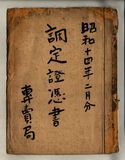 昭和十四年二月分
調定證憑書
專賣局